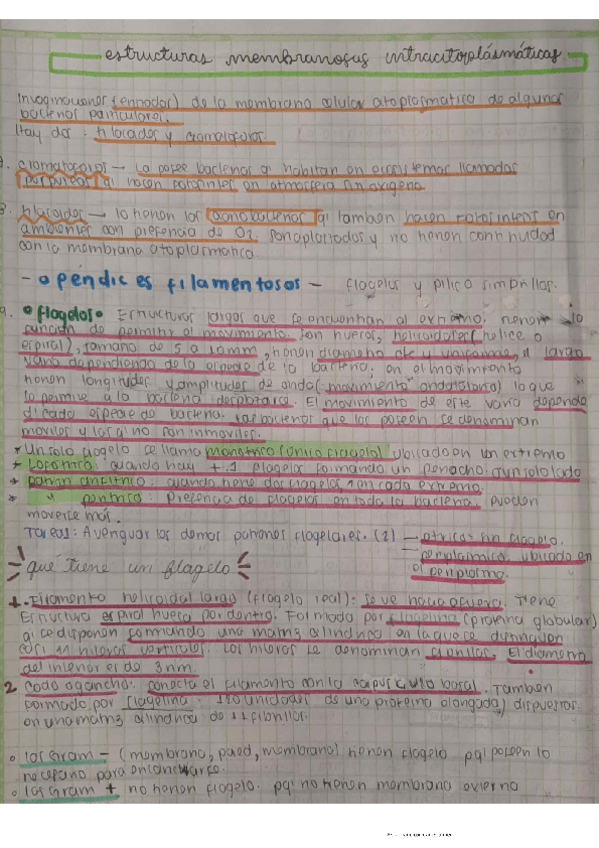 estructuras membranosas intracitoplásmáticas
Invaginaciones (entradas) de la membrana celular citoplasmatica de algunas
bacterias particulares.
Hay dos: tilacoides y cromatoforos.
cromatoforos — La posee bacterias q habitan en ecosistemas llamados
purpureos q hacen fotosintesis en atmosfera sin oxigeno
tilacoides — lo tienen las cianobacterias q tambien hacen fotosintesis en
ambientes con presencia de O2. Son aplastados y no tienen continuidad
con la membrana citoplasmatica.
- apéndices filamentosos - flagelos y pilis o fimbrillas.
• flagelos • Estructuras largas que se encuentran al externo. tienen la
función de permitir el movimiento. Son huecos, helicoidales (helice o
espiral), tamaño de 5 a 10mm, tienen diametro cte y uniforme, el largo
varia dependiendo de la especie de la bacteria. en el movimiento
tienen longitudes y amplitudes de onda (movimiento ondulatorio) lo que
le permite a la bacteria desplazarse. El movimiento de este varia depende
de cada especie de bacteria. Las bacterias que los poseen se denominan
moviles y las q no son inmoviles.
* Un solo flagelo se llama monotrico (único flagelo) ubicado en un extremo
+ Lofotrico: cuando hay + 1 flagelos formando un penacho, un solo lado
* patron anfitrico: cuando tiene dos flagelos, 1 en cada extremo.
* " peritrico: Presencia de flagelos en toda la bacteria. Pueden
moverse más.
Tarea: Averiguar los demas patrones flagelares. (2) — atricas sin flagelo.
— periplasmica, ubicado en
el periplasma.
qué tiene un flagelo
1. Filamento helicoidal largo (flagelo real): Se ve hacia afuera. Tiene
Estructura espiral hueca por dentro. Formado por flagelina (proteina globular)
q se disponen formando una matriz cilindrica en la que se distinguen
casi 11 hileras verticales. Las hileras se denominan fibrillas. El diametro
del interior es de 3nm.
2 Codo o gancho: conecta el filamento con la capus culo basal. Tambien
formado por flagelina. 130 unidades de una proteina alongada) dispuestos
en una matriz cilindrica de 11 fibrillas.
• las Gram - (membrana, pared, membrana) tienen flagelo pq poseen lo
necesario para anclarse.
• las Gram + no tienen flagelo. pq no tienen membrana externa